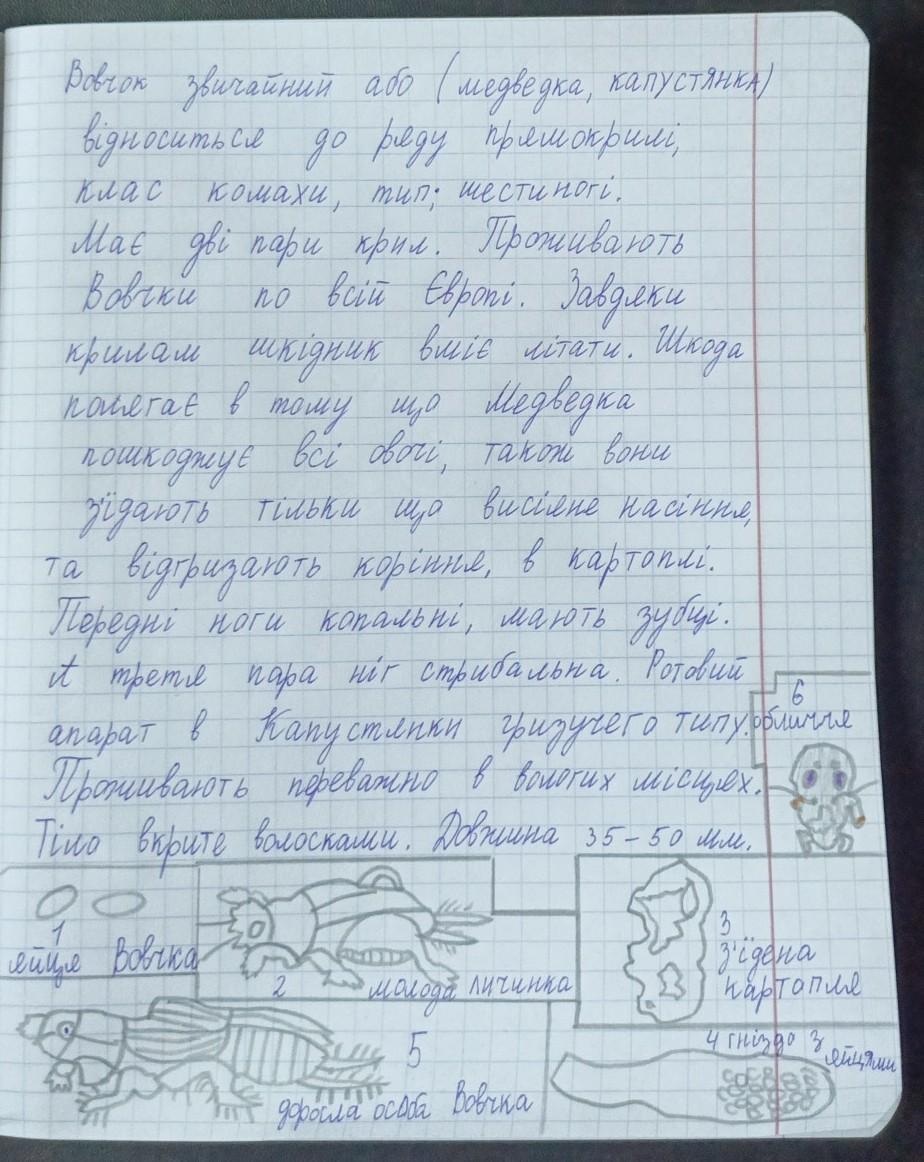 Вовчок звичайний або (медведка, капустянка)
відноситься до ряду прямокрилі,
клас комахи, тип; шестиногі.
Має дві пари крил. Проживають
Вовчки по всій Європі. Завдяки
крилам шкідник вміє літати. Шкода
полягає в тому що Медведка
пошкоджує всі овочі, також вони
з'їдають тільки що висіяне насіння,
та відгризають коріння, в картоплі.
Передні ноги копальні, мають зубці.
А третя пара ніг стрибальна. Ротовий
апарат в Капустянки гризучего типу.
Проживають переважно в вологих місцях.
Тіло вкрите волосками. Довжина 35-50 мм.
6
обличчя
1
яйця Вовчка
2 молода личинка
3
з'їдена
картопля
4 гніздо з
яйцями
5
доросла особа Вовчка